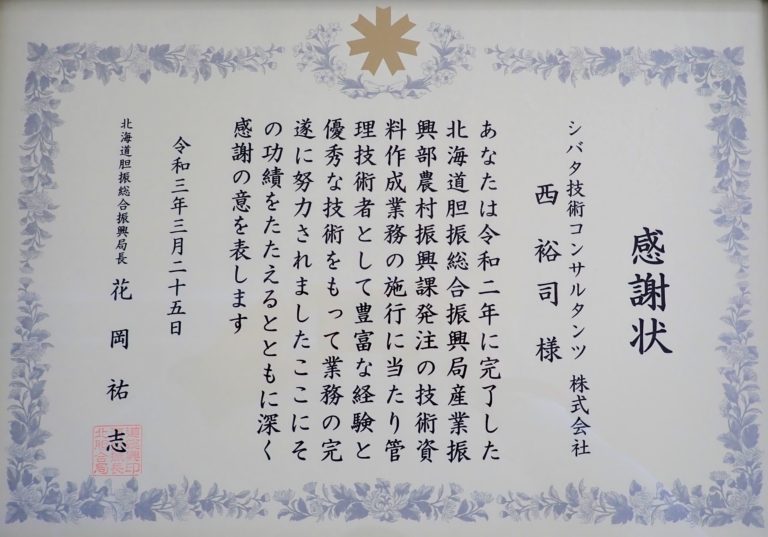 感謝状
シバタ技術コンサルタンツ 株式会社
西裕司様
あなたは令和二年に完了した
北海道胆振総合振興局産業振
興部農村振興課発注の技術資
料作成業務の施行に当たり管
理技術者として豊富な経験と
優秀な技術をもって業務の完
遂に努力されましたここにそ
の功績をたたえるとともに深く
感謝の意を表します
令和三年三月二十五日
北海道胆振総合振興局長 花岡祐志